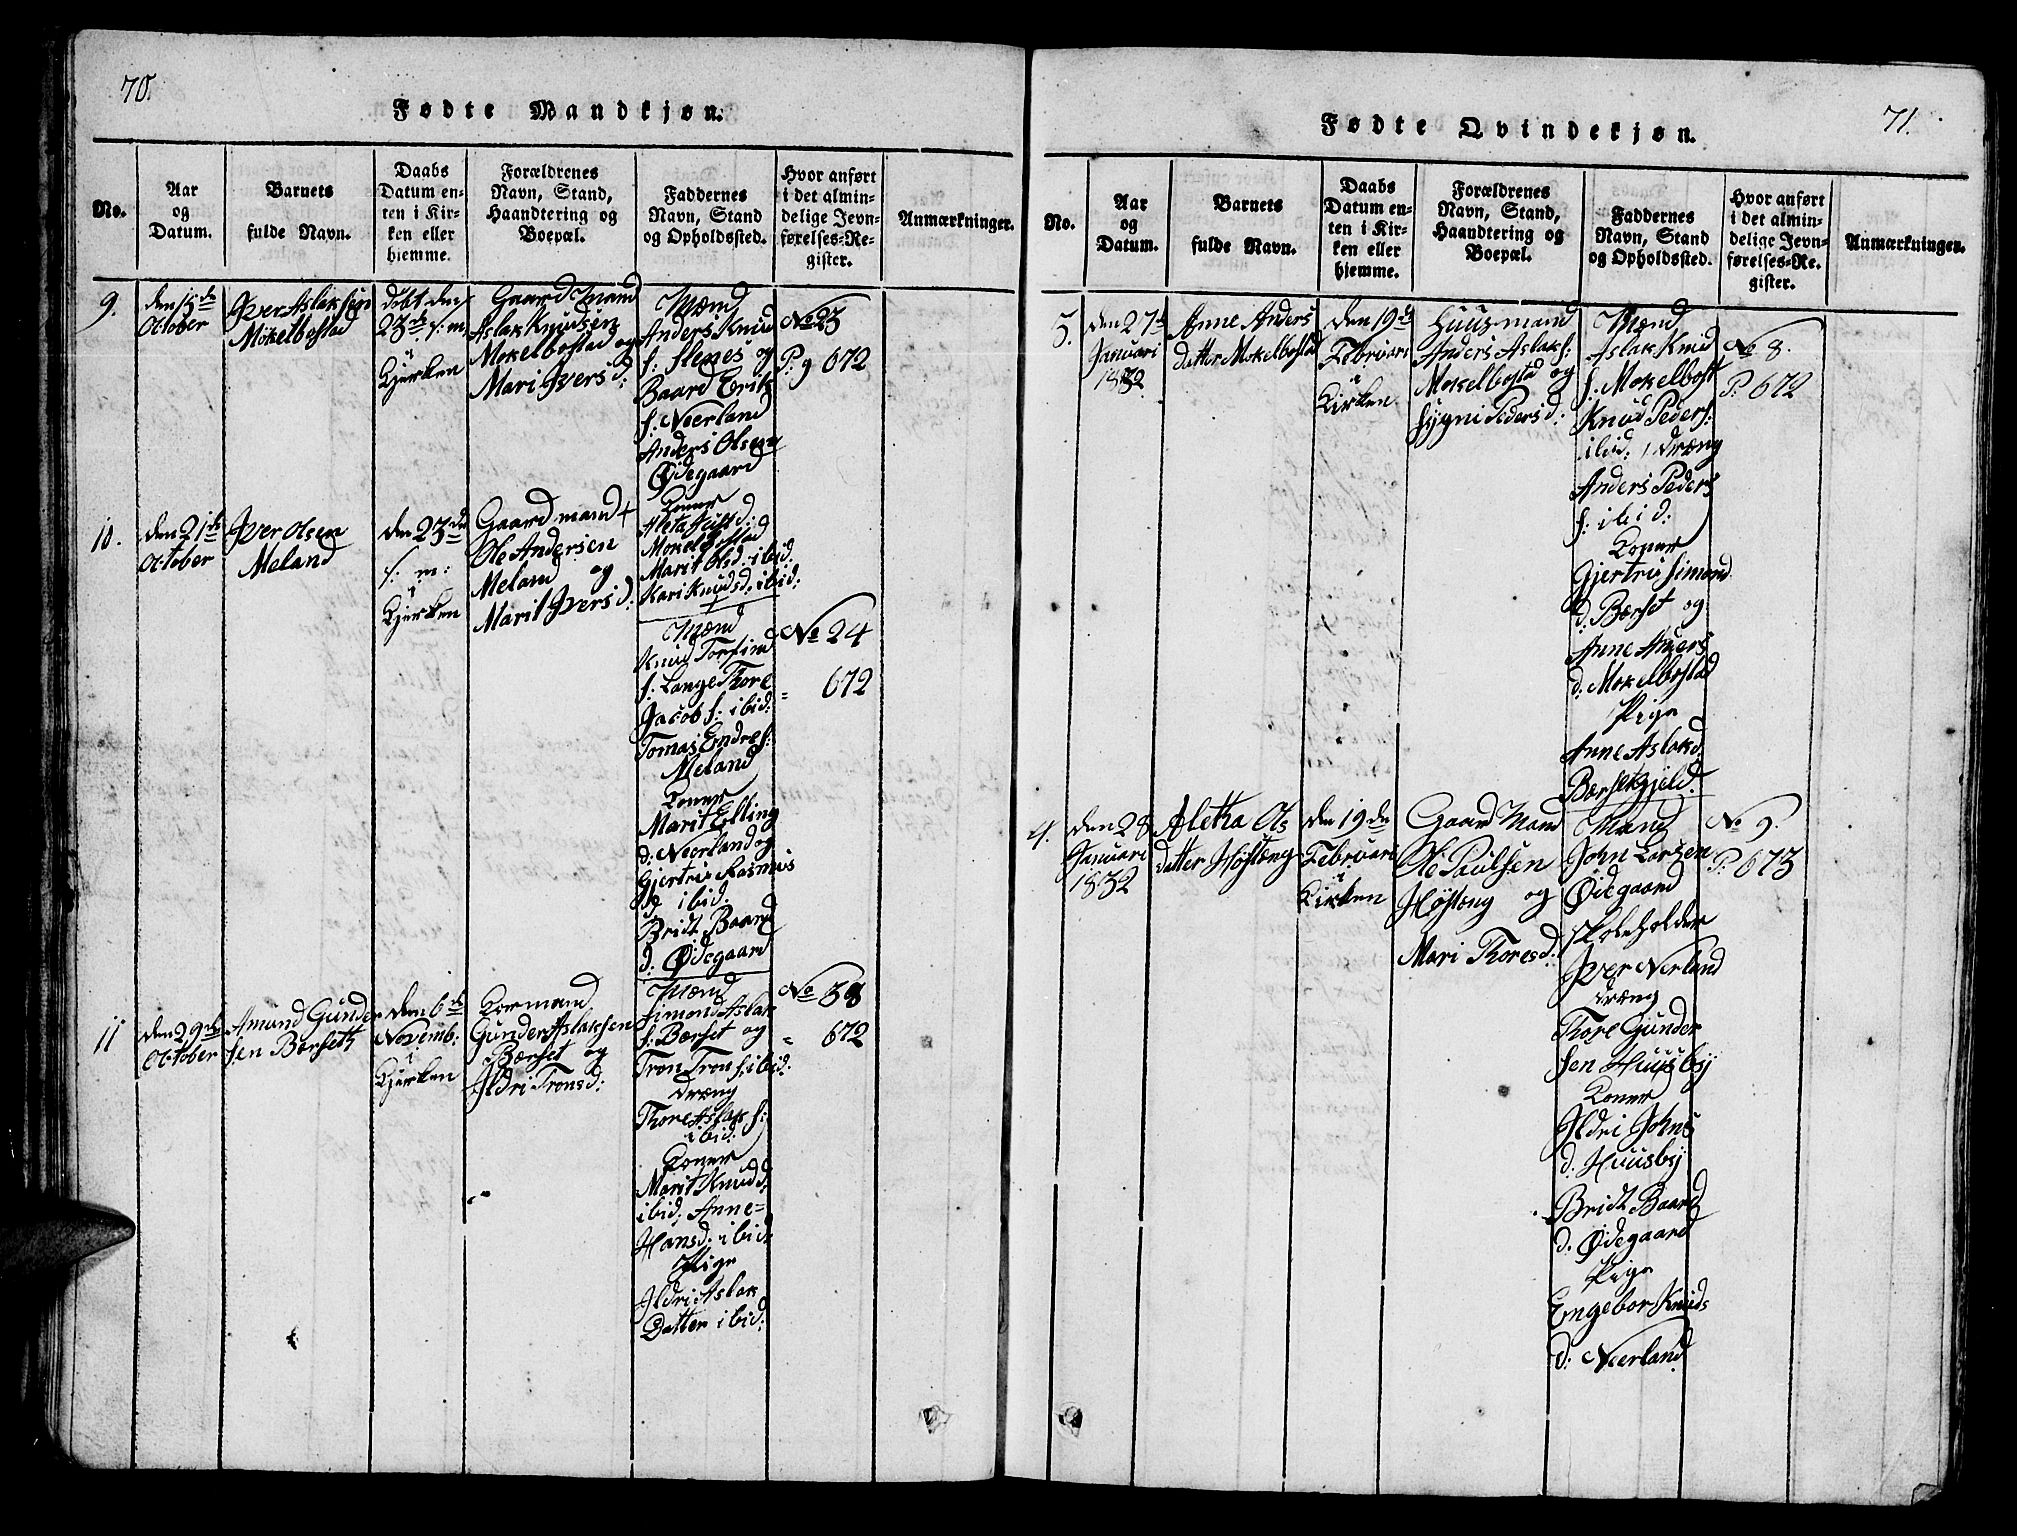 70.
Fødte Mandkjøn.
No.
Aar
og
Datum.
Barnets
fulde Navn.
Daabs
Datum en-
ten i Kir-
ken eller
hjemme.
Forældrenes
Navn, Stand,
Haandtering og
Boepæl.
Faddernes
Navn, Stand
og Opholdssted.
Hvor anført
i det almin-
delige Jevn-
førelses-Re-
gister.
Anmærkninger.
9.
den 15de
October
Iver Aslaksen
Mokelbostad
døbt den
23de s: m:
i
Kjerken
Gaard Mand
Aslak Knudsen
Mokelbostad og
Mari Ivers d:
Mænd
Anders Knud
s: flenes og
Baard Erik
s: Neerland
Anders Olsen
Ødegaard
Koner
Mokelbostad
Marit Olsd: ibid:
Kari Knudsd: ibid:
No 23
P: 672
10.
den 21de
October
Iver Olsen
Meland
den 23de
s: m:
i
Kjerken
Gaardmand
Ole Andersen
Meland og
Marit Ivers d:
Mænd
Knud Torfind
s: Lange Thore
Jacob s: ibid:
Tomas Endre s:
Meland
Koner
Marit Elling
d: Neerland og
Gjertru Rasmus
d ibid.
Bridt Baard
d: Ødegaard
No 24
" 672
11
den 29de
October
Amund Gunder
sen Bærseth
den 6te
Novemb:
i
Kjerken
Gunder Aslaksen
Bærset og
Ildri Trons d:
Mænd
Simond Aslak
s: Bærset og
Tron Tron s: ibid:
dræng
Thore Aslak s:
ibid:
Koner
Marit Knud d:
ibid: Anne
Hansd: ibid:
Pige
Ildri Aslak
Datter ibid:
No 38
" 672
71.
Fødte Qvindekjøn.
No.
Aar
og
Datum.
Barnets
fulde Navn.
Daabs
Datum en-
ten i Kir-
ken eller
hjemme.
Forældrenes
Navn, Stand,
Haandtering og
Boepæl.
Faddernes
Navn, Stand
og Opholdssted.
Hvor anført
i det almin-
delige Jevn-
førelses-Re-
gister.
Anmærkninger.
3.
den 27de
Januari
1832
Anne Anders
datter Mokelbostad
den 19de
Februari
i
Kirken
Huusmand
Anders Aslak s:
Mokelbostad og
Sygni Peders d:
Mænd
Aslak Knud
s: Mokelbost
Knud Peder s:
ibid: dræng
Anders Peders
s: ibid:
Koner
Gjertru Simond
d: Bærset og
Anne Anders
d: Mokelbostad
Pige
Anne Aslak d:
No 8.
P: 672
4.
den 28
Januari
1832
Aletha Ols
datter Høstæng
den 19de
Februari
i
Kirken
Gaard Mand
Ole Paulsen
Høstæng og
Mari Thores d:
Mænd
John Larsen
Ødegaard
skoleholder
Iver Nerland
dræng
Thore Gunder
sen Huusby
Koner
Ildri Johns
d: Huusby
Bridt Baard
d: Ødegaard
Pige
Engebor Knuds
d: Neerland
No 9.
P: 673